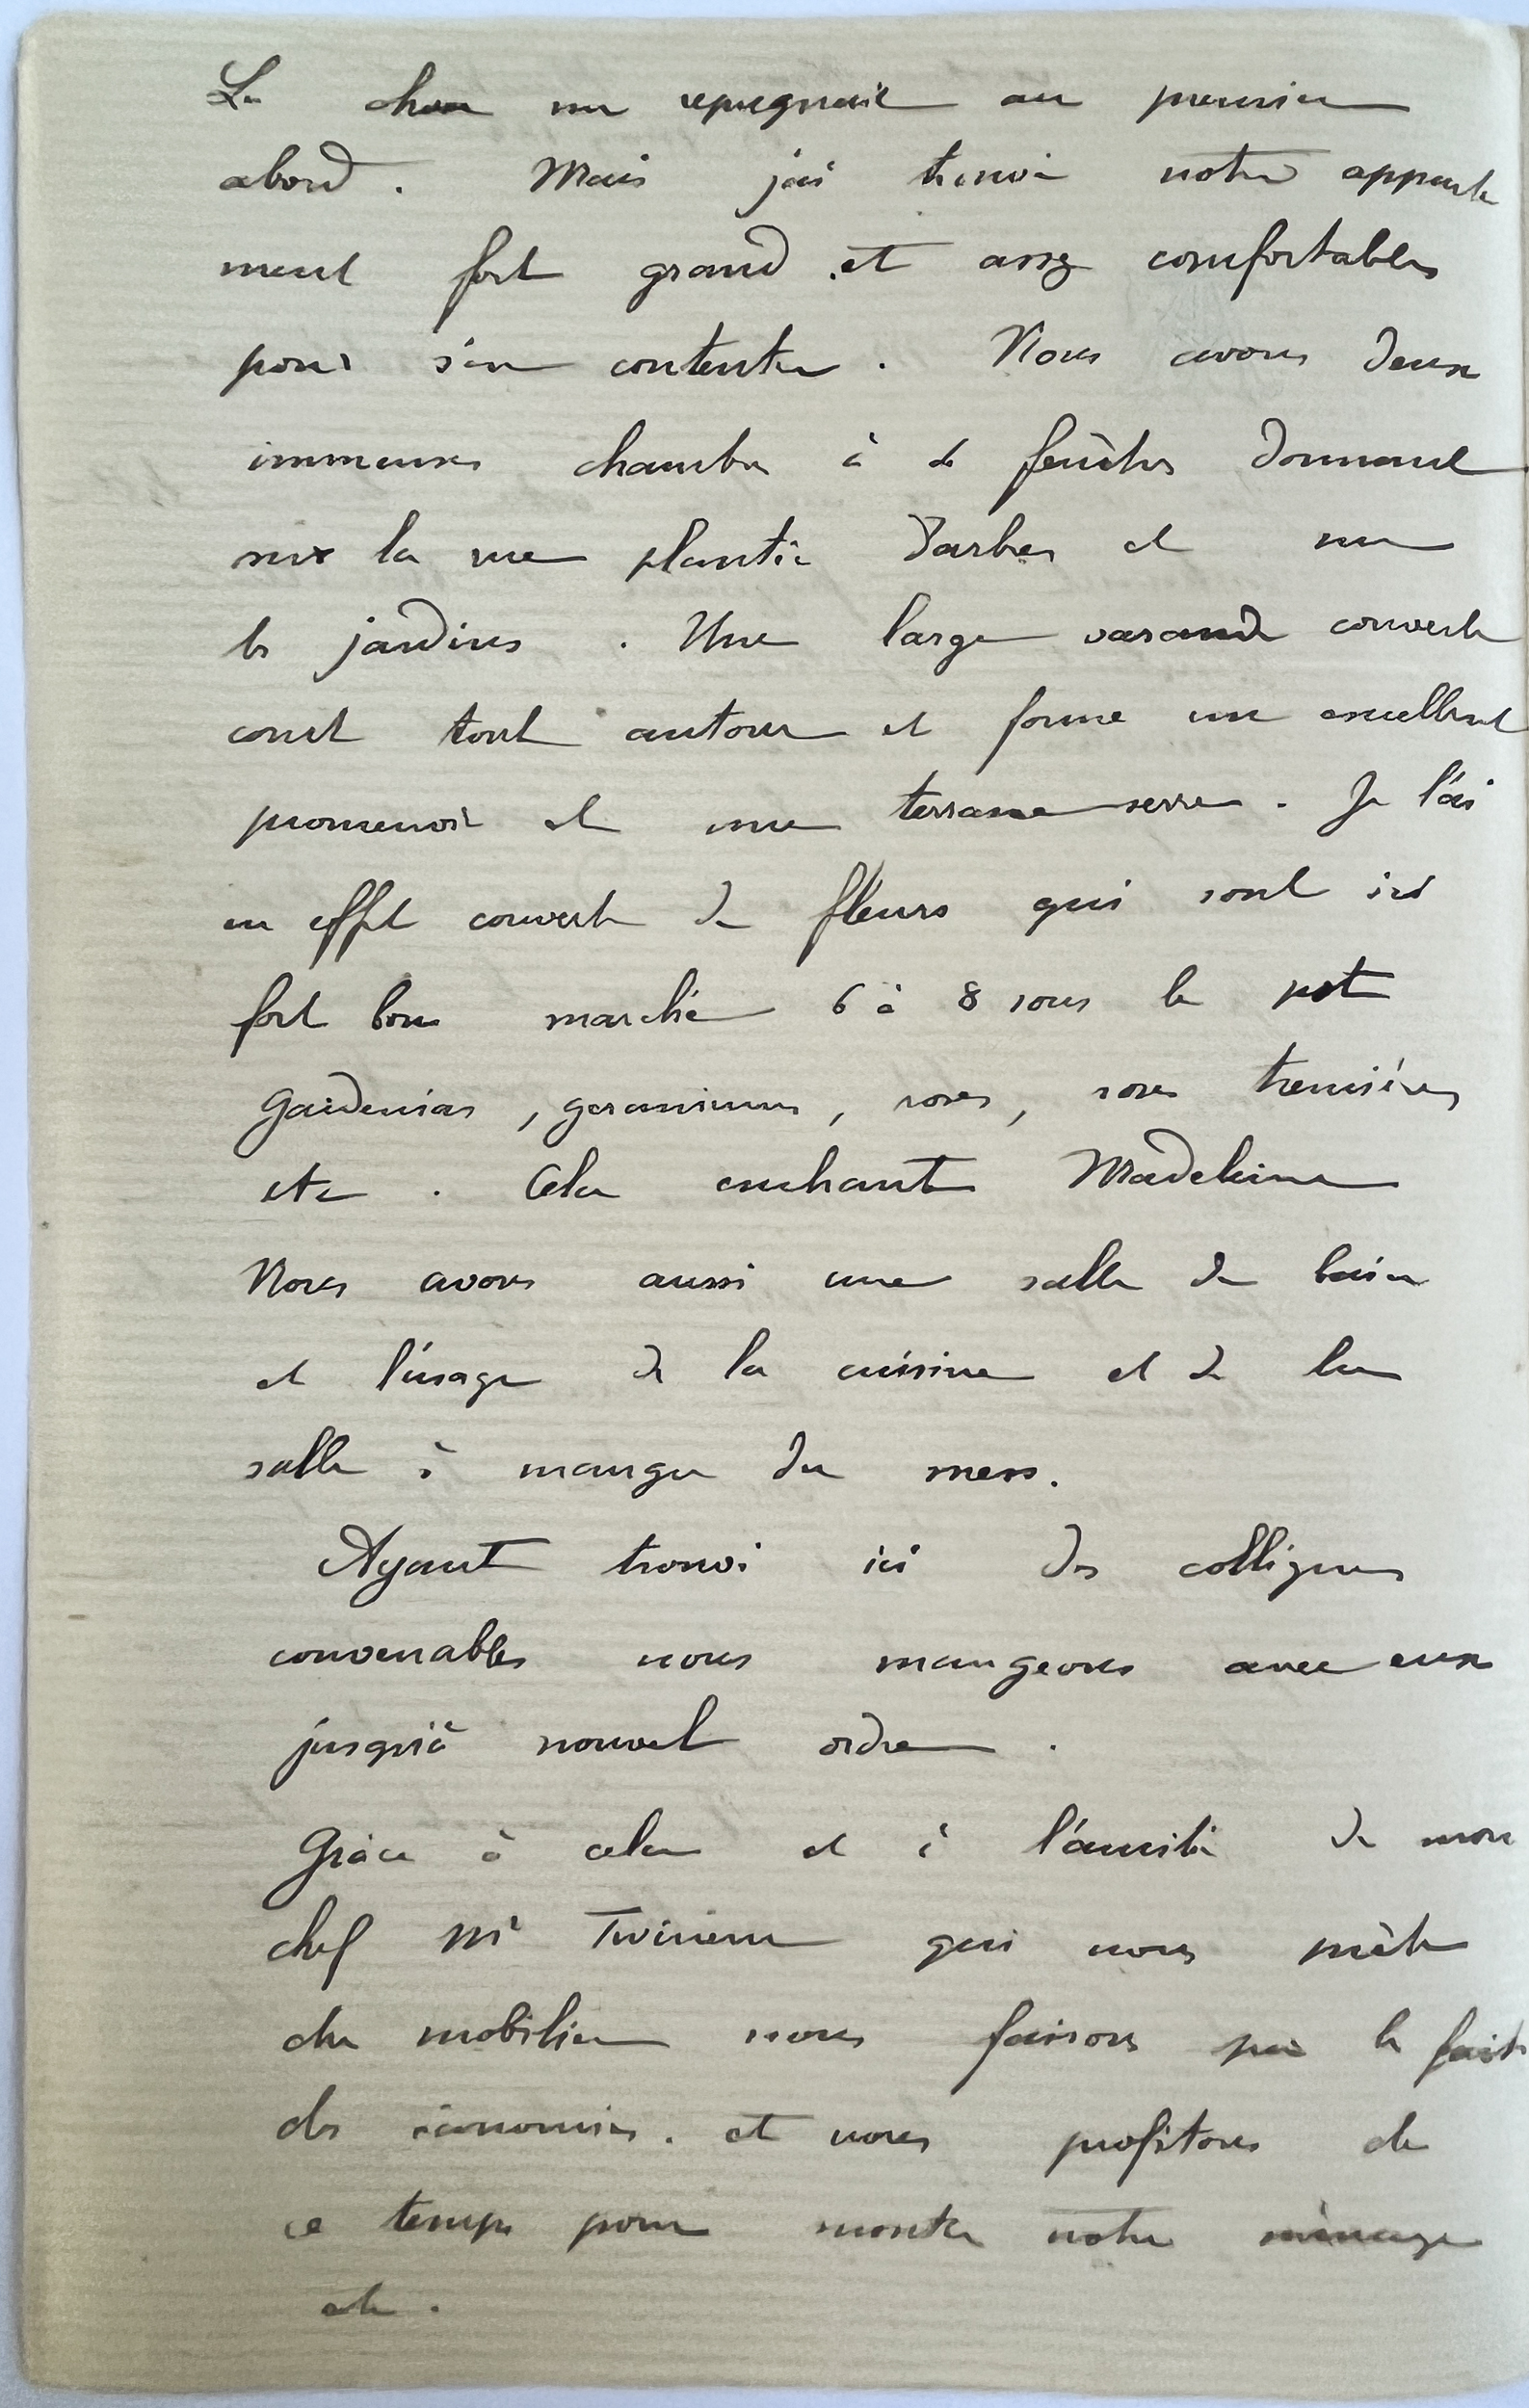 La chose me repugnait au premier
abord. Mais j'ai trouvé notre apparte
ment fort grand et assez confortables
pour s'en contenter. Nous avons deux
immenses chambres à 2 fenêtres donnant
sur la rue plantée d'arbres et sur
les jardins. Une large varande couverte
court tout autour et forme un excellent
promenoir et une terrasse serre. Je l'ai
en effet couverte de fleurs qui sont ici
fort bon marché 6 à 8 sous le pot
Gardenias, geraniums, roses, roses tremières
etc. Cela enchante Madeleine
Nous avons aussi une salle de bain
et l'usage de la cuisine et de la
salle à manger du mess.
Ayant trouvé ici des collègues
convenables nous mangeons avec eux
jusqu'à nouvel ordre.
Grâce à cela et à l'amitié de mon
chef Mr qui nous prête
du mobilier nous faisons par le fait
des économies. et nous profitons de
ce temps pour monter notre ménage
etc.